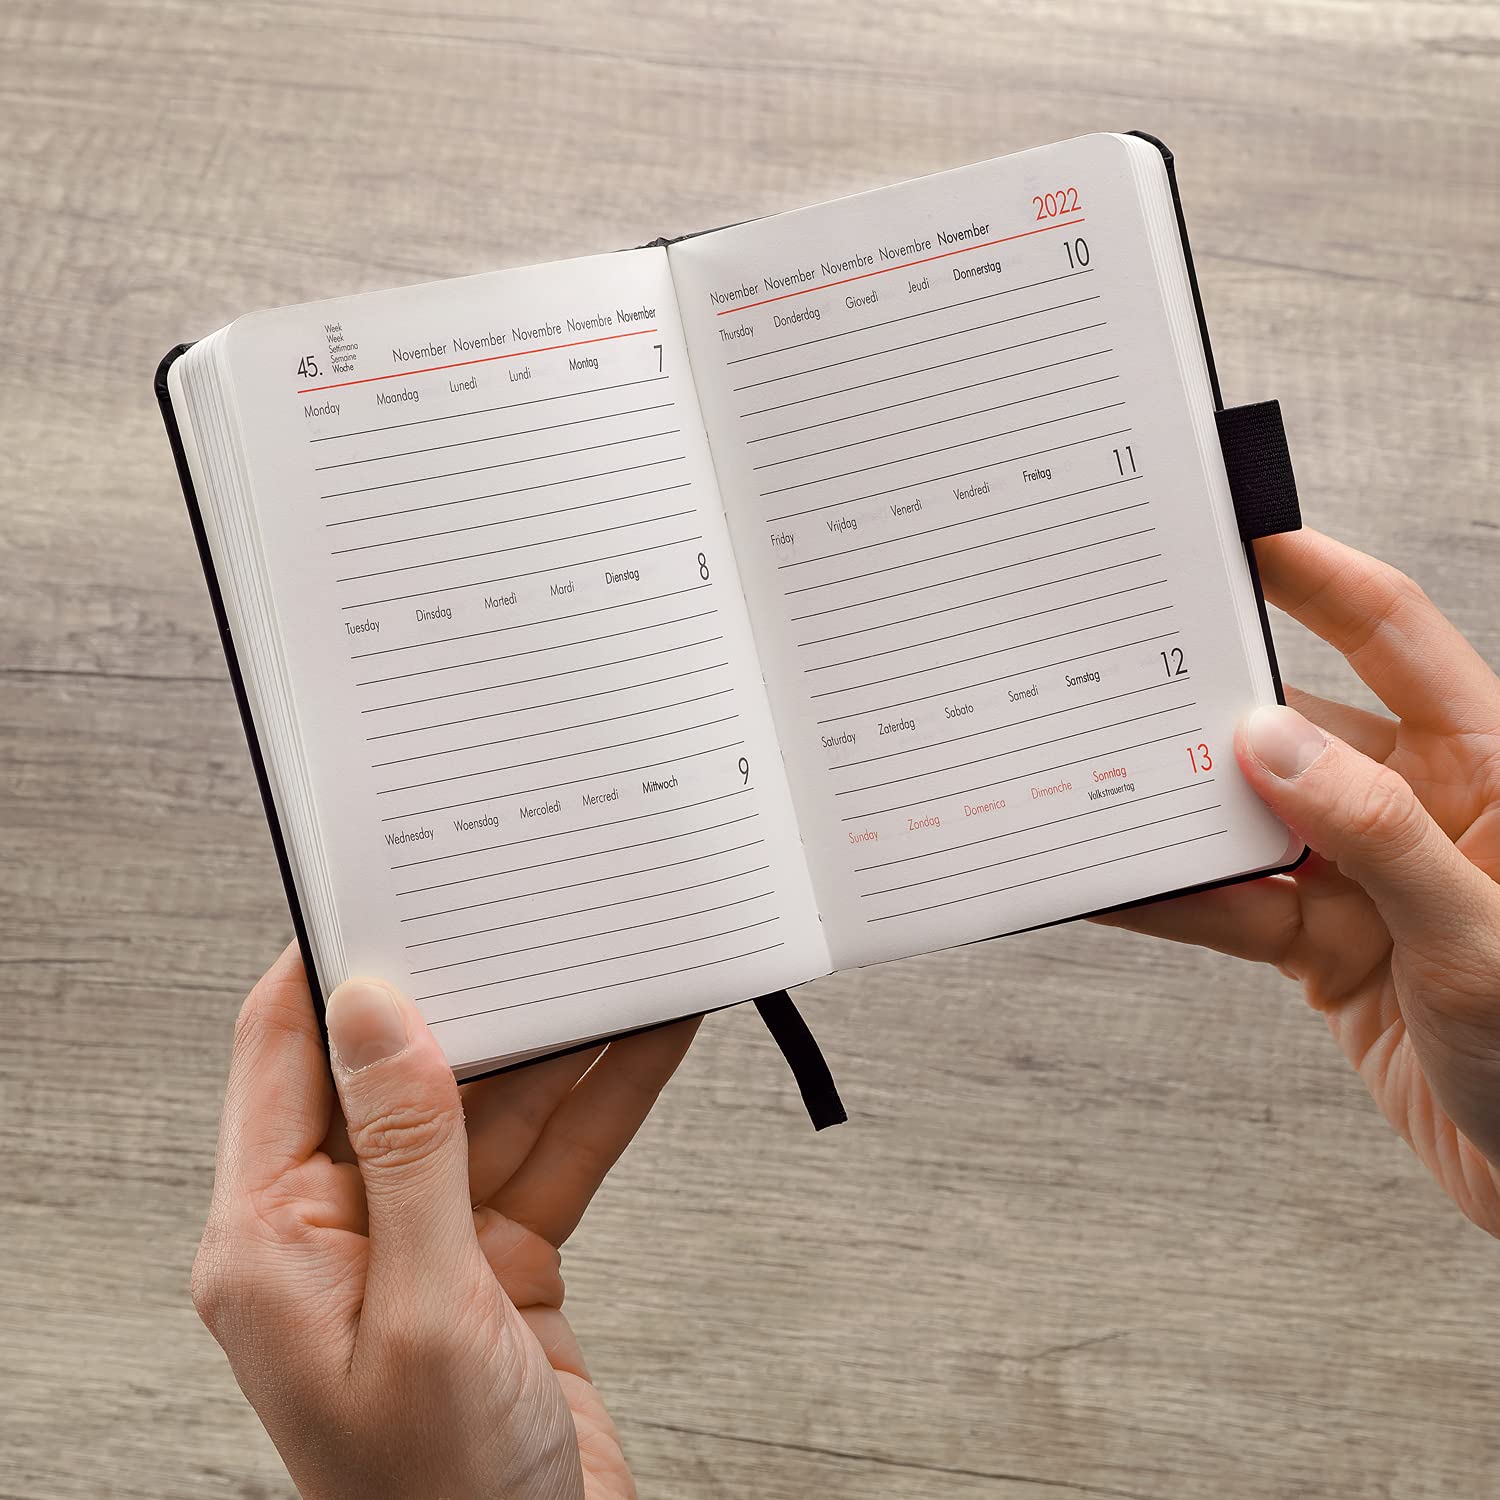 45. Week
Week
Settimana
Semaine
Woche
November November Novembre Novembre November
Monday Maandag Lunedì Lundi Montag 7
Tuesday Dinsdag Martedì Mardi Dienstag 8
Wednesday Woensdag Mercoledì Mercredi Mittwoch 9
2022
November November Novembre Novembre November
Thursday Donderdag Giovedì Jeudi Donnerstag 10
Friday Vrijdag Venerdì Vendredi Freitag 11
Saturday Zaterdag Sabato Samedi Samstag 12
Sunday Zondag Domenica Dimanche Sonntag 13
Volkstrauertag